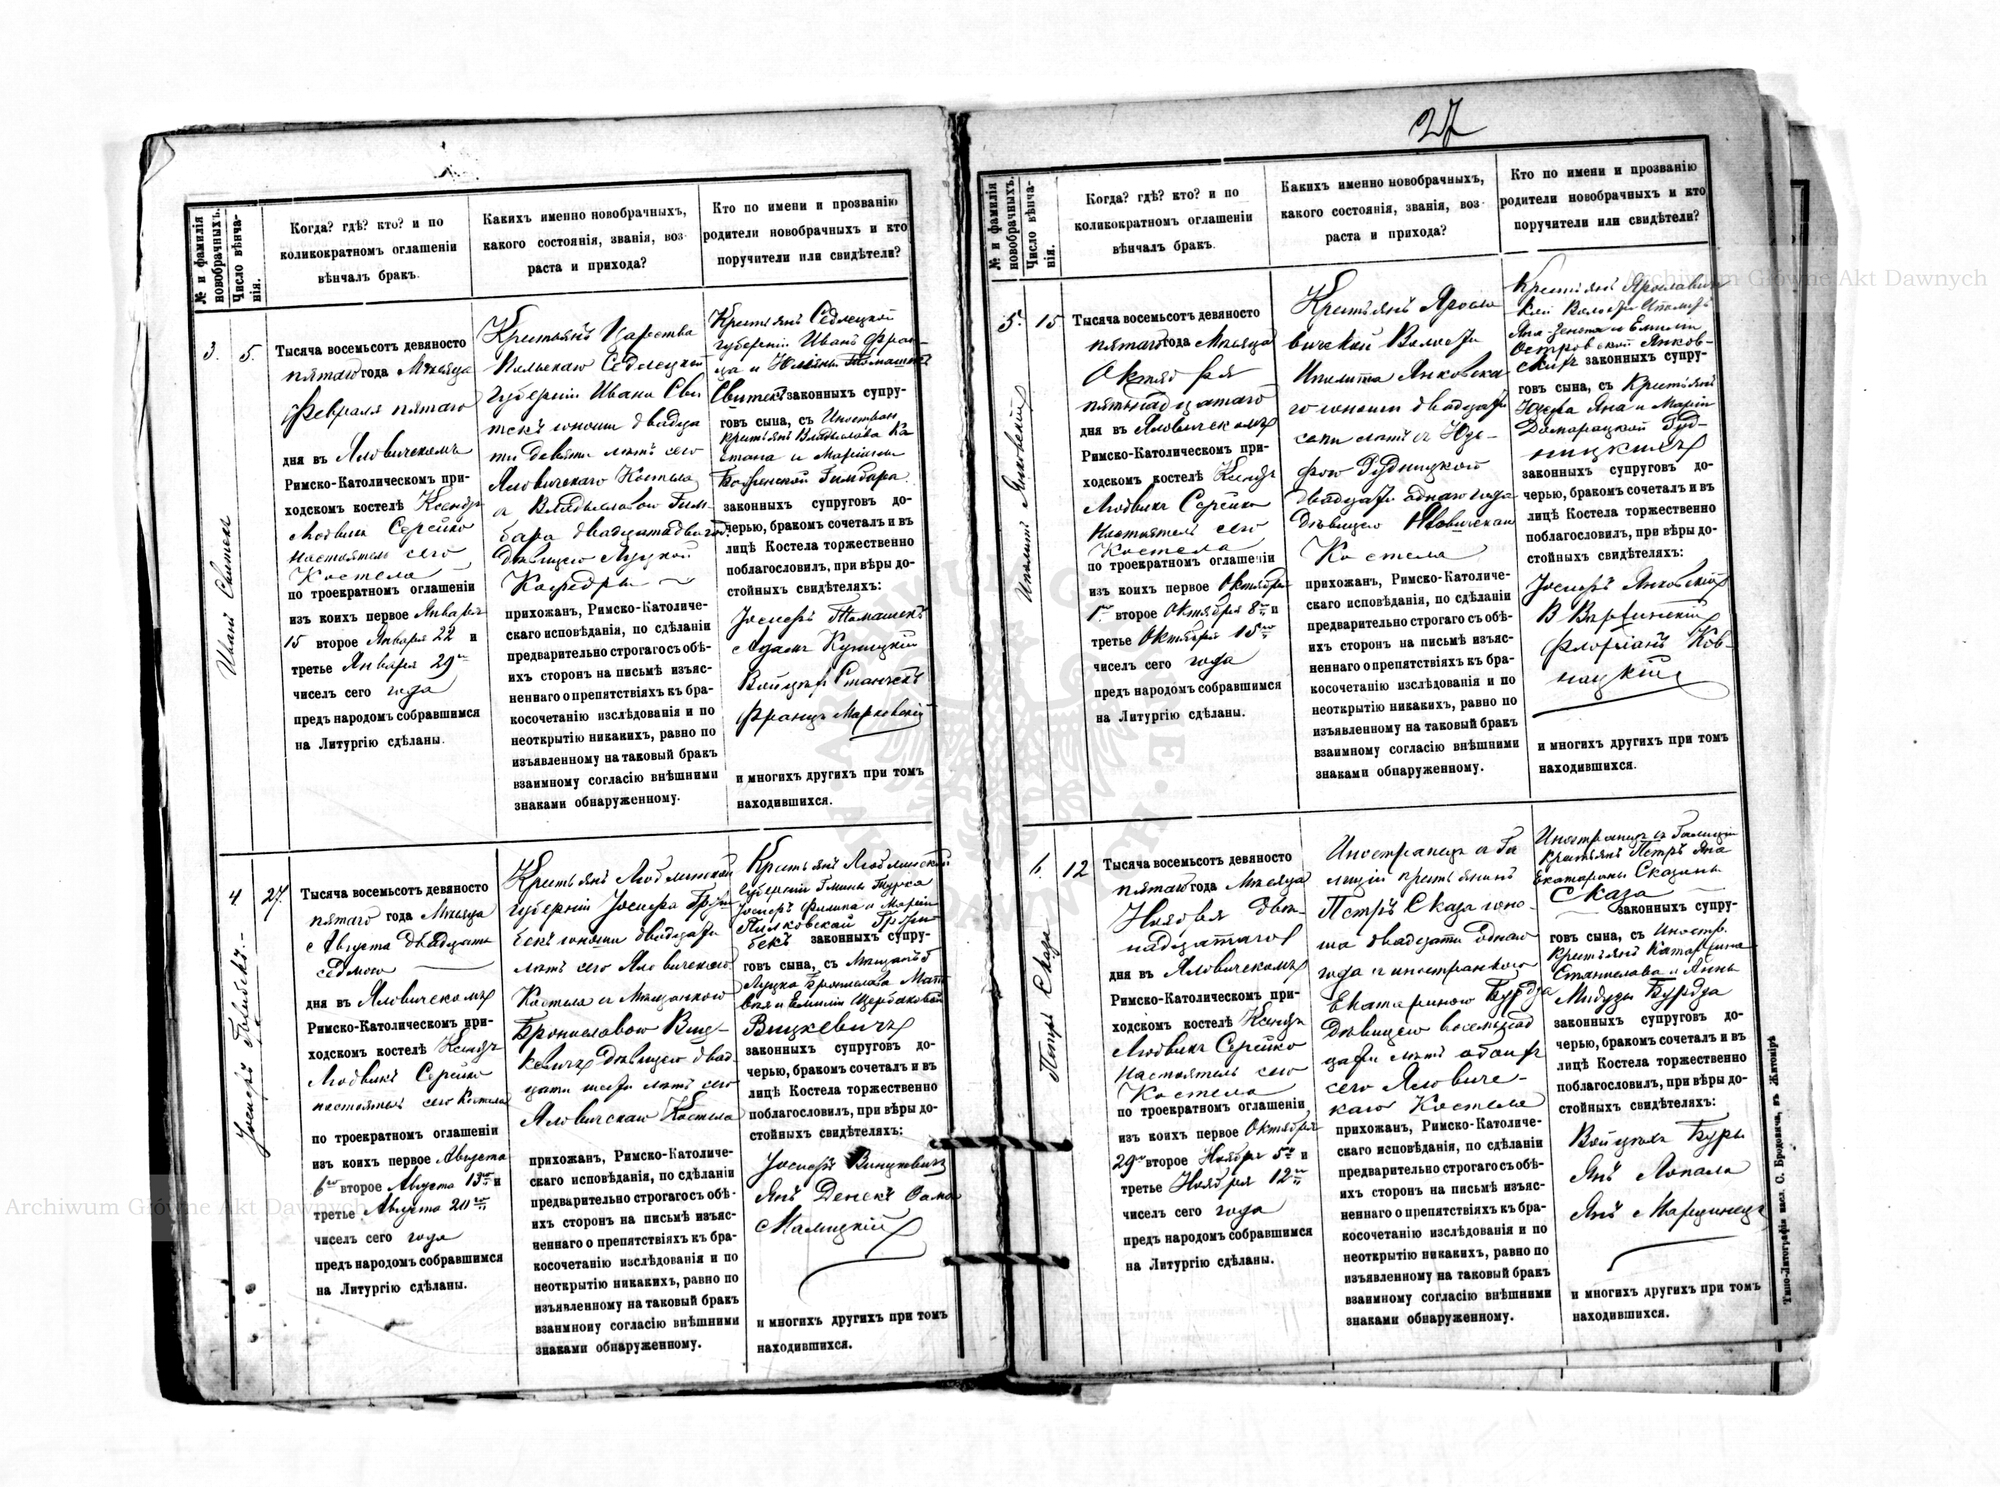 27
№ и фамилія новобрачныхъ.
Число вѣнчанія.
Когда? гдѣ? кто? и по
коликократномъ оглашеніи
вѣнчалъ бракъ.
Какихъ именно новобрачныхъ,
какого состоянія, званія, воз
раста и прихода?
Кто по имени и прозванію
родители новобрачныхъ и кто
поручители или свидѣтели?
3.
5.
Иванъ Свитекъ
Тысяча восемьсотъ девяносто
пятаго года Мѣсяца
Февраля пятаго
дня въ Яловичскомъ
Римско-Католическомъ при-
ходскомъ костелѣ Ксендзъ
Людвикъ Серейко
настоятель сего
Костела
по троекратномъ оглашеніи
изъ коихъ первое Января
15 второе Января 22 и
третье Января 29
чиселъ сего года
предъ народомъ собравшимся
на Литургію сдѣланы.
Крестьянъ Царства
Польскаго Седлецкой
губерніи Ивана Сви
текъ юноши двадца
ти девяти лѣтъ сего
Яловичскаго Костела
Кафедры
прихожанъ, Римско-Католиче-
скаго исповѣданія, по сдѣланіи
предварительно строгаго съ обѣ-
ихъ сторонъ на письмѣ изъяс-
неннаго о препятствіяхъ къ бра-
косочетанію изслѣдованія и по
неоткрытію никакихъ, равно по
изъявленному на таковый бракъ
взаимному согласію внѣшними
знаками обнаруженному.
Крестьянъ Седлецкой
губерніи Иванъ Фран-
Свитекъ законныхъ супру-
говъ сына, съ
законныхъ супруговъ до-
черью, бракомъ сочеталъ и въ
лицѣ Костела торжественно
поблагословилъ, при вѣры до-
стойныхъ свидѣтеляхъ:
Іосифъ Томашекъ
Адамъ Куницкій
Францъ Марковскій
и многихъ другихъ при томъ
находившихся.
4
27.
Тысяча восемьсотъ девяносто
пятаго года Мѣсяца
Августа двадцать
седмого
дня въ Яловичскомъ
Римско-Католическомъ при-
ходскомъ костелѣ Ксендзъ
Людвикъ Серейко
настоятель сего Костела
по троекратномъ оглашеніи
изъ коихъ первое Августа
6го второе Августа 13 и
третье Августа 20
чиселъ сего года
предъ народомъ собравшимся
на Литургію сдѣланы.
Крестьянъ Люблинской
губерніи Іосифа
юноши двадцати
лѣтъ сего Яловичскаго
Костела съ Мѣщанкою
Брониславою Виц-
кевичъ дѣвицею двад
цати шести лѣтъ сего
Яловичскаго Костела
прихожанъ, Римско-Католиче-
скаго исповѣданія, по сдѣланіи
предварительно строгаго съ обѣ-
ихъ сторонъ на письмѣ изъяс-
неннаго о препятствіяхъ къ бра-
косочетанію изслѣдованія и по
неоткрытію никакихъ, равно по
изъявленному на таковый бракъ
взаимному согласію внѣшними
знаками обнаруженному.
Крестьянъ Люблинской
законныхъ супру-
говъ сына, съ Мѣщанъ
Вицкевичъ
законныхъ супруговъ до-
черью, бракомъ сочеталъ и въ
лицѣ Костела торжественно
поблагословилъ, при вѣры до-
стойныхъ свидѣтеляхъ:
Іосифъ Вицкевичъ
Янъ
Малицкій
и многихъ другихъ при томъ
находившихся.
№ и фамилія новобрачныхъ.
Число вѣнчанія.
Когда? гдѣ? кто? и по
коликократномъ оглашеніи
вѣнчалъ бракъ.
Какихъ именно новобрачныхъ,
какого состоянія, званія, воз
раста и прихода?
Кто по имени и прозванію
родители новобрачныхъ и кто
поручители или свидѣтели?
5.
15
Иполитъ Янковскій
Тысяча восемьсотъ девяносто
пятаго года Мѣсяца
Октября
пятнадцатаго
дня въ Яловичскомъ
Римско-Католическомъ при-
ходскомъ костелѣ Ксендзъ
Людвикъ Серейко
Настоятель сего
Костела
по троекратномъ оглашеніи
изъ коихъ первое Октября
1го второе Октября 8 и
третье Октября 15го
чиселъ сего года
предъ народомъ собравшимся
на Литургію сдѣланы.
Крестьянъ Яросла
вичской Волости
Иполита Янковска
го юноши двадцати
лѣтъ съ Юзе-
фою Рудницкой
двадцати одного года
дѣвицею Яловичскаго
Костела
прихожанъ, Римско-Католиче-
скаго исповѣданія, по сдѣланіи
предварительно строгаго съ обѣ-
ихъ сторонъ на письмѣ изъяс-
неннаго о препятствіяхъ къ бра-
косочетанію изслѣдованія и по
неоткрытію никакихъ, равно по
изъявленному на таковый бракъ
взаимному согласію внѣшними
знаками обнаруженному.
Крестьянъ Ярославич
ской Волости
Островской Янков-
скихъ законныхъ супру-
говъ сына, съ Крестьянъ
Яна и Маріи
Домарацкой Руд-
ницкихъ
законныхъ супруговъ до-
черью, бракомъ сочеталъ и въ
лицѣ Костела торжественно
поблагословилъ, при вѣры до-
стойныхъ свидѣтеляхъ:
Іосифъ Янковскій
Флоріанъ
и многихъ другихъ при томъ
находившихся.
6.
12
Петръ Сказа
Тысяча восемьсотъ девяносто
пятаго года Мѣсяца
Ноября двѣ-
надцатаго
дня въ Яловичскомъ
Римско-Католическомъ при-
ходскомъ костелѣ Ксендзъ
Людвикъ Серейко
Настоятель сего
Костела
по троекратномъ оглашеніи
изъ коихъ первое Октября
29 второе Ноября 5 и
третье Ноября 12
чиселъ сего года
предъ народомъ собравшимся
на Литургію сдѣланы.
Иностранца съ Га
лиціи крестьянина
Петръ Сказа юно-
ша двадцати одного
года съ иностранкою
Екатериною Бурдза
дѣвицею восемнад
цати лѣтъ обоихъ
сего Яловичс-
каго Костела
прихожанъ, Римско-Католиче-
скаго исповѣданія, по сдѣланіи
предварительно строгаго съ обѣ-
ихъ сторонъ на письмѣ изъяс-
неннаго о препятствіяхъ къ бра-
косочетанію изслѣдованія и по
неоткрытію никакихъ, равно по
изъявленному на таковый бракъ
взаимному согласію внѣшними
знаками обнаруженному.
Иностранца съ Галиціи
крестьянъ Петръ Яна
Екатерины
Сказа
законныхъ супру-
говъ сына, съ Иностр.
Крестьянъ Катаржина
Станислава и Анны
Бурдза
законныхъ супруговъ до-
черью, бракомъ сочеталъ и въ
лицѣ Костела торжественно
поблагословилъ, при вѣры до-
стойныхъ свидѣтеляхъ:
Янъ Лопата
Янъ
и многихъ другихъ при томъ
находившихся.
Типо-Литографія насл. С. Бродовича, въ Житомірѣ
Archiwum Główne Akt Dawnych
Archiwum Główne Akt Dawnych